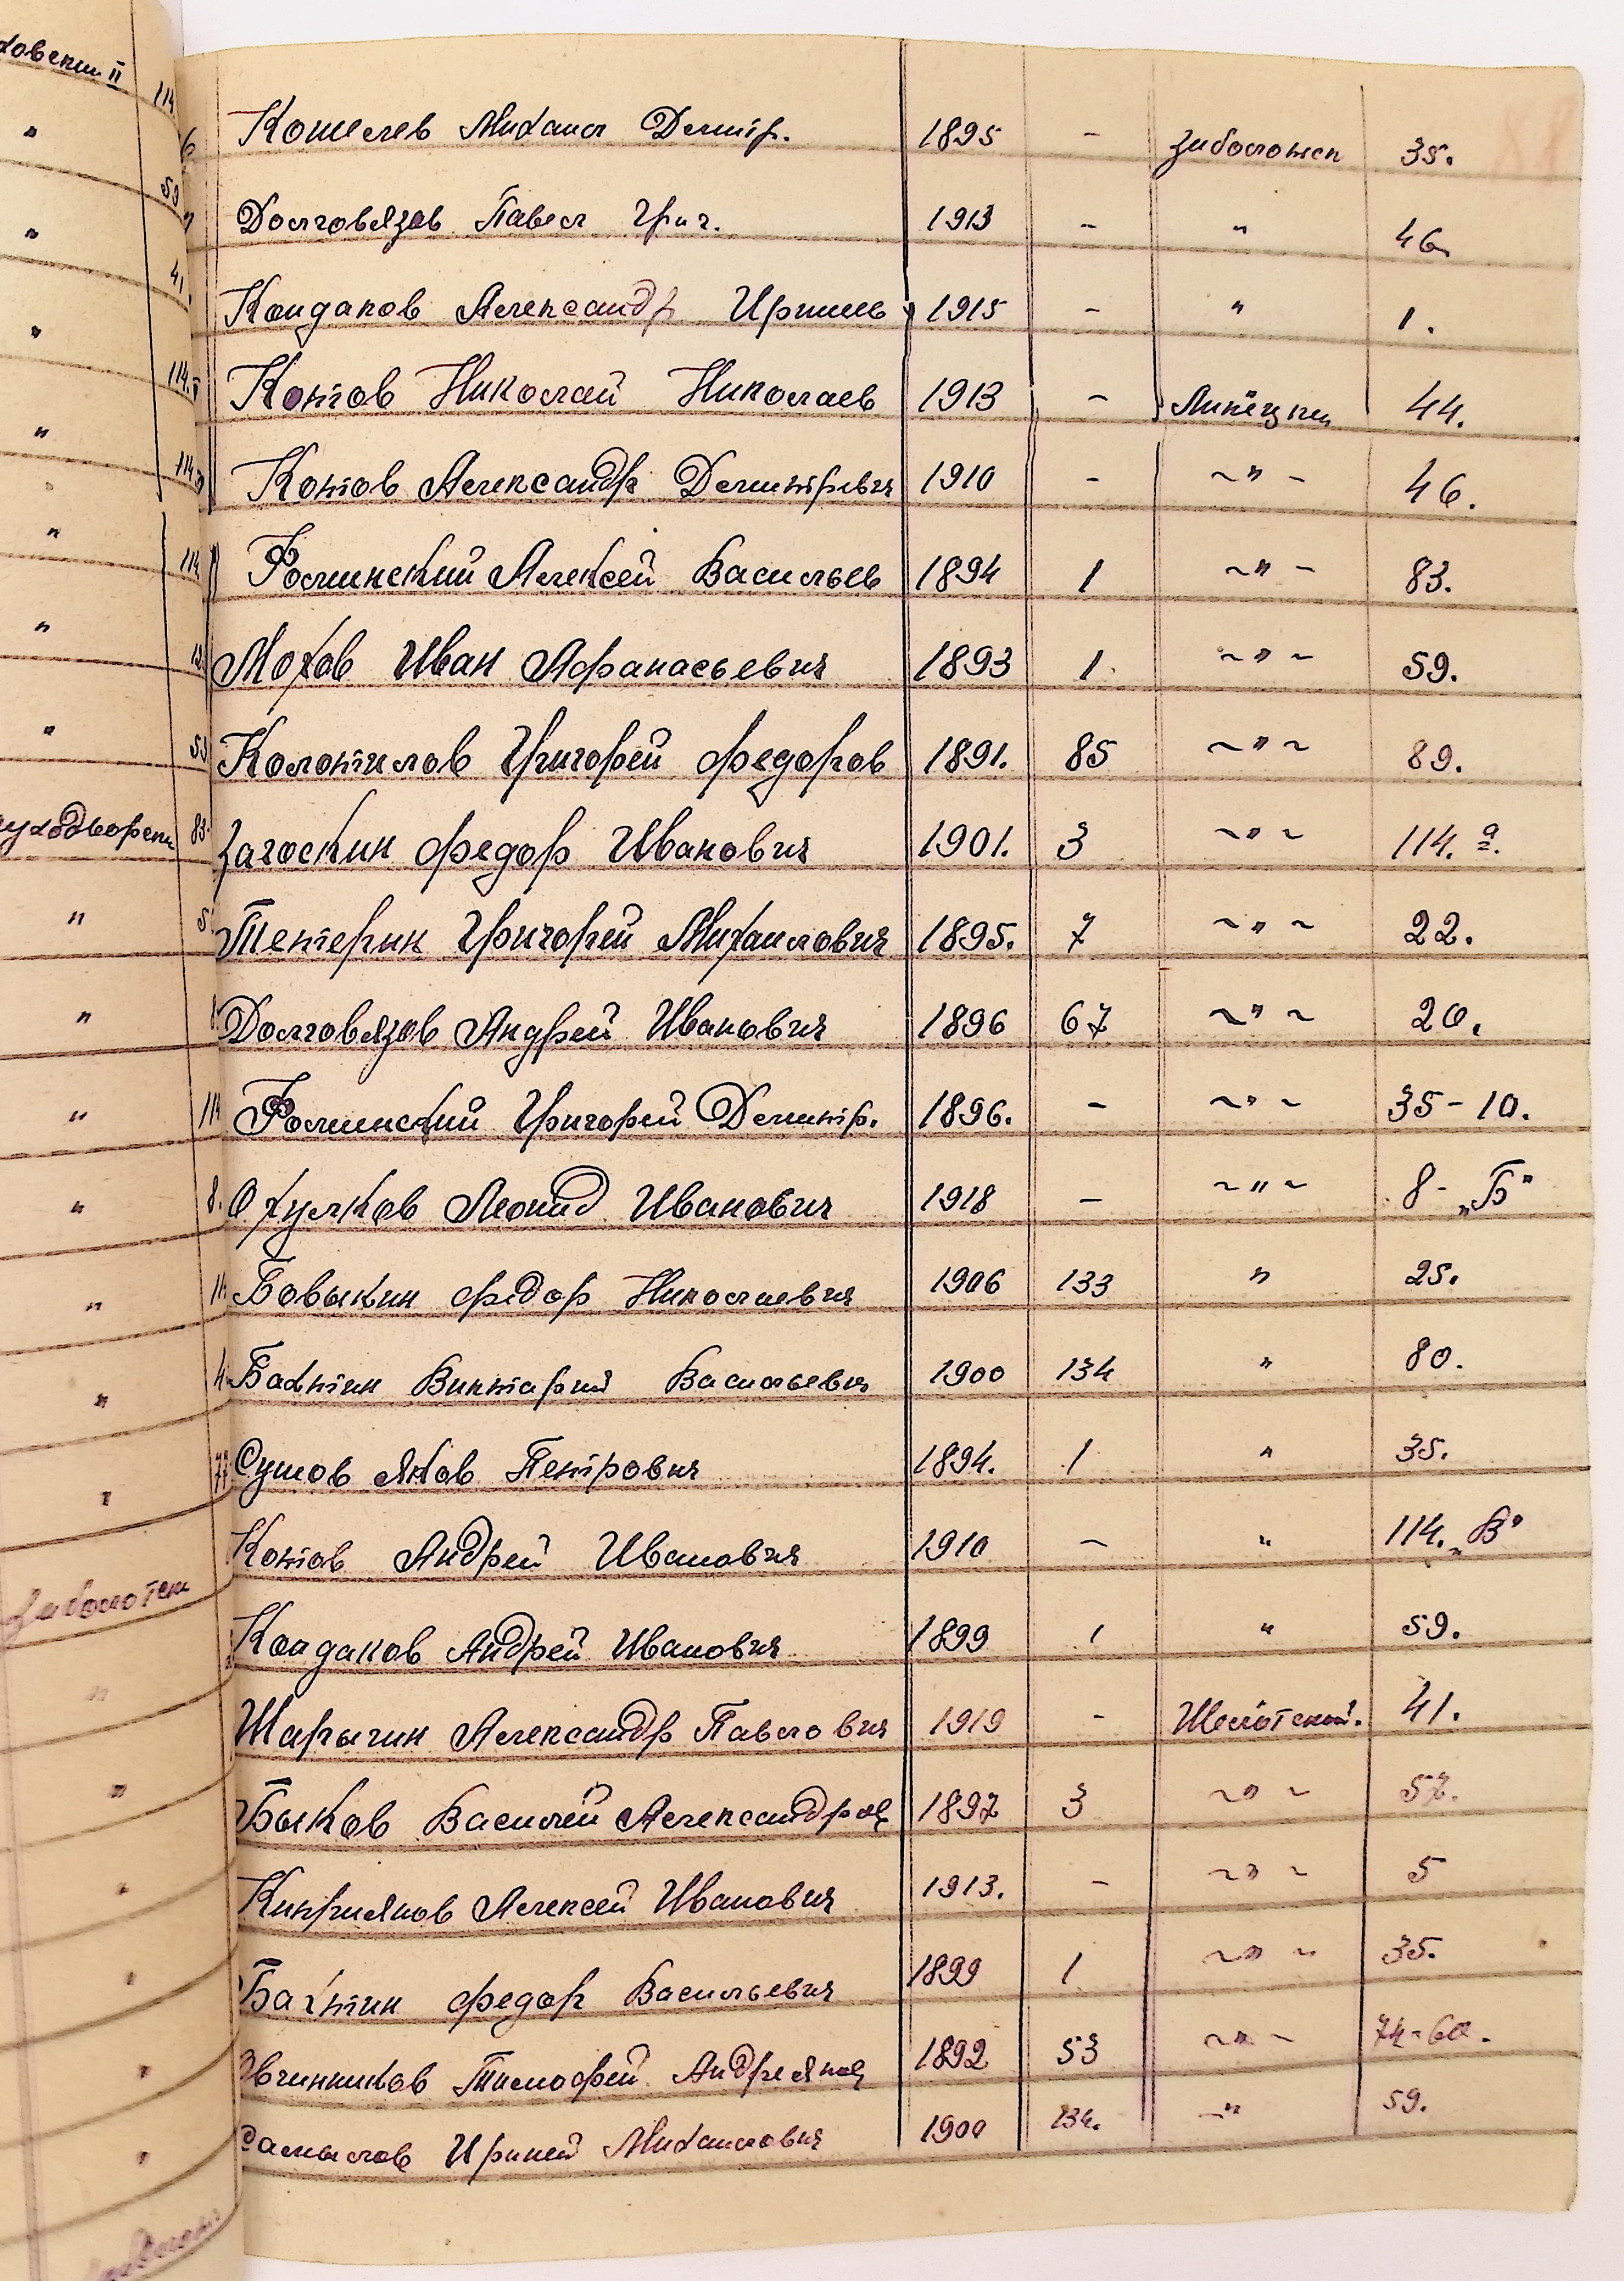 Кошелев Михаил Дмитр. 1895 - Заболотск 35.
Долговязов Павел Григ. 1913 - " 46.
Кондаков Александр Ириней 1915 - " 1.
Котов Николай Николаев 1913 - Липецкий 44.
Котов Александр Дмитриевич 1910 - ~"- 46.
Ролинский Алексей Васильев 1894 1 ~"- 83.
Мохов Иван Афанасьевич 1893 1 ~"~ 59.
Колотилов Григорей Федоров 1891. 85 ~"~ 89.
Загоскин Федор Иванович 1901. 3 ~"~ 114. а.
Тетерин Григорей Михаилович 1895. 7 ~"~ 22.
Долговязов Андрей Иванович 1896 67 ~"~ 20.
Ролинский Григорей Дмитр. 1896. - ~"~ 35-10.
Охулков Леонид Иванович 1918 - ~"~ 8-„Б"
Бовыкин Федор Николаевич 1906 133 " 25.
Бахтин Виктарий Васильевич 1900 134 " 80.
Сумов Яков Петрович 1894. 1 " 35.
Котов Андрей Иванович 1910 - " 114. „В"
Кондаков Андрей Иванович 1899 1 " 59.
Шарыгин Александр Павлович 1919 - 41.
Быков Василей Александров 1897 3 ~"~ 57.
Киприянов Алексей Иванович 1913. - ~"~ 5
Бахтин Федор Васильевич 1899 1 ~"~ 35.
Овчинников Тимофей Андреянов 1892 53 ~"- 74-60.
Самылов Ириней Михаилович 1900 134. -" 59.